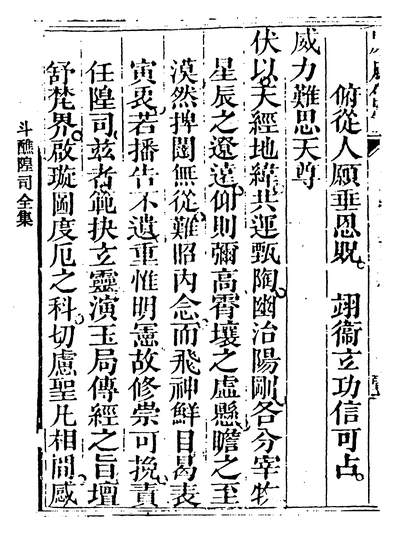 俯從人願垂恩貺。 翊衞立功信可占。
威力難思天尊
伏以。天經地緯。共運甄陶。幽治陽剛。各分宰牧。
星辰之遼遠。仰則彌高。霄壤之虛懸。瞻之至
漠。然捭闔無從。難昭內念。而飛神鮮目。曷表
寅衷。若播告不遺。重惟明憲。故修崇可挽。責
任隍司。茲者範抉立靈。演玉局傳經之旨。壇
舒梵界。啟璇圖度厄之科。切慮聖凡相間。感
斗醮隍司全集